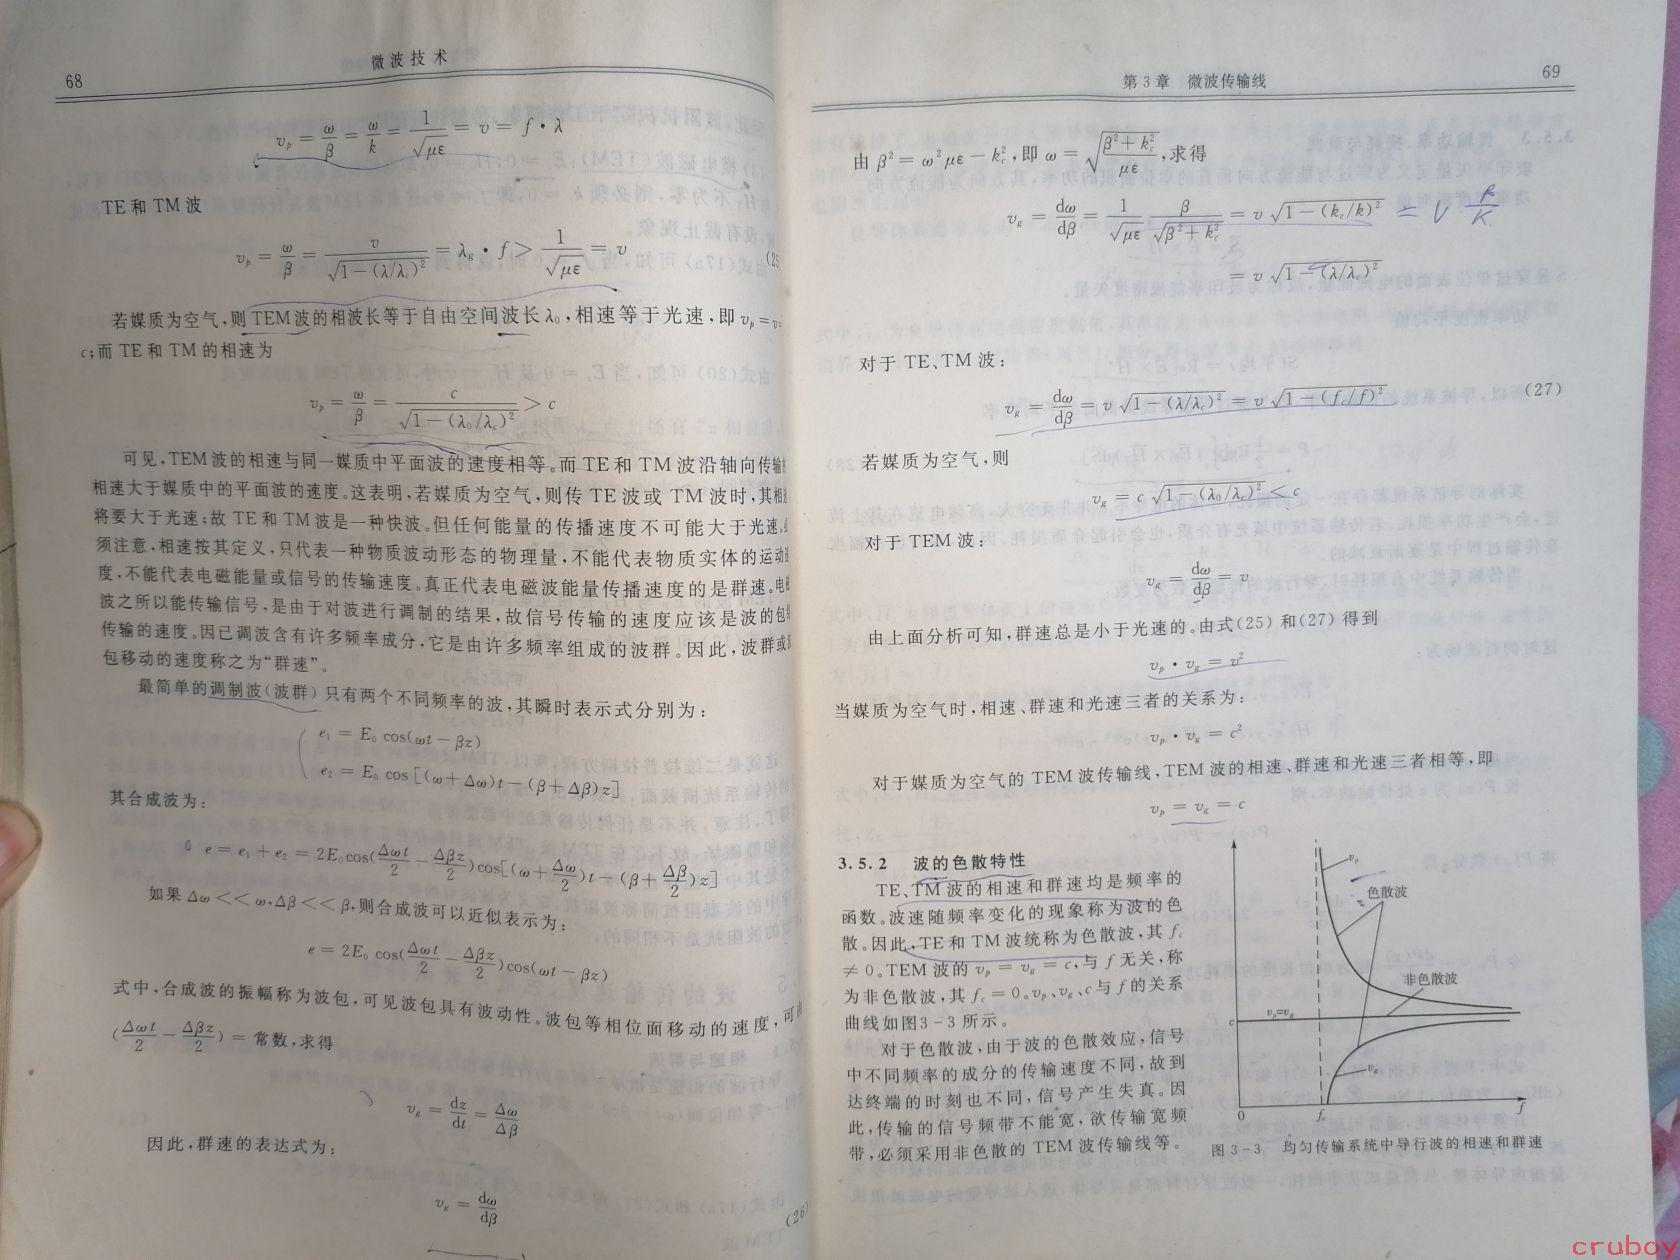 68
微波技术
v_p = ω/β = ω/k = 1/√(με) = v = f·λ
TE和TM波
v_p = ω/β = v/√(1-(λ/λ_c)²) = λ_g·f > 1/√(με) = v
若媒质为空气,则TEM波的相波长等于自由空间波长λ₀,相速等于光速,即 v_p = v =
c;而TE和TM的相速为
v_p = ω/β = c/√(1-(λ₀/λ_c)²) > c
可见,TEM波的相速与同一媒质中平面波的速度相等。而TE和TM波沿轴向传输
相速大于媒质中的平面波的速度。这表明,若媒质为空气,则传TE波或TM波时,其相
将要大于光速;故TE和TM波是一种快波。但任何能量的传播速度不可能大于光速。
须注意,相速按其定义,只代表一种物质波动形态的物理量,不能代表物质实体的运动
度,不能代表电磁能量或信号的传输速度。真正代表电磁波能量传播速度的是群速。电
波之所以能传输信号,是由于对波进行调制的结果,故信号传输的速度应该是波的包
传输的速度。因已调波含有许多频率成分,它是由许多频率组成的波群。因此,波群或
包移动的速度称之为“群速”。
最简单的调制波(波群)只有两个不同频率的波,其瞬时表示式分别为:
e₁ = E₀ cos(ωt-βz)
e₂ = E₀ cos[(ω+Δω)t-(β+Δβ)z]
其合成波为:
e = e₁+e₂ = 2E₀cos(Δωt/2 - Δβz/2)cos[(ω+Δω/2)t-(β+Δβ/2)z]
如果 Δω<<ω,Δβ<<β,则合成波可以近似表示为:
e = 2E₀ cos(Δωt/2 - Δβz/2)cos(ωt-βz)
式中,合成波的振幅称为波包,可见波包具有波动性。波包等相位面移动的速度,可
(Δωt/2 - Δβz/2) = 常数,求得
v_g = dz/dt = Δω/Δβ
因此,群速的表达式为:
v_g = dω/dβ
(26
第3章 微波传输线
69
由 β² = ω²με-k_c²,即 ω = √((β²+k_c²)/με),求得
v_g = dω/dβ = 1/√(με) β/√(β²+k_c²) = v√(1-(k_c/k)²) = v β/K
= v√(1-(λ/λ_c)²)
对于TE、TM波:
v_g = dω/dβ = v√(1-(λ/λ_c)²) = v√(1-(f_c/f)²) (27)
若媒质为空气,则
v_g = c√(1-(λ₀/λ_c)²) < c
对于TEM波:
v_g = dω/dβ = v
由上面分析可知,群速总是小于光速的。由式(25)和(27)得到
v_p·v_g = v²
当媒质为空气时,相速、群速和光速三者的关系为:
v_p·v_g = c²
对于媒质为空气的TEM波传输线,TEM波的相速、群速和光速三者相等,即
v_p = v_g = c
3.5.2 波的色散特性
TE、TM波的相速和群速均是频率的
函数。波速随频率变化的现象称为波的色
散。因此,TE和TM波统称为色散波,其 f_c
≠0。TEM波的 v_p = v_g = c,与 f 无关,称
为非色散波,其 f_c=0。v_p、v_g、c与f的关系
曲线如图3-3所示。
对于色散波,由于波的色散效应,信号
中不同频率的成分的传输速度不同,故到
达终端的时刻也不同,信号产生失真。因
此,传输的信号频带不能宽,欲传输宽频
带,必须采用非色散的TEM波传输线等。
v_p
色散波
非色散波
v_p=v_g
c
v_g
0
f_c
f
图3-3 均匀传输系统中导行波的相速和群速
cruboy